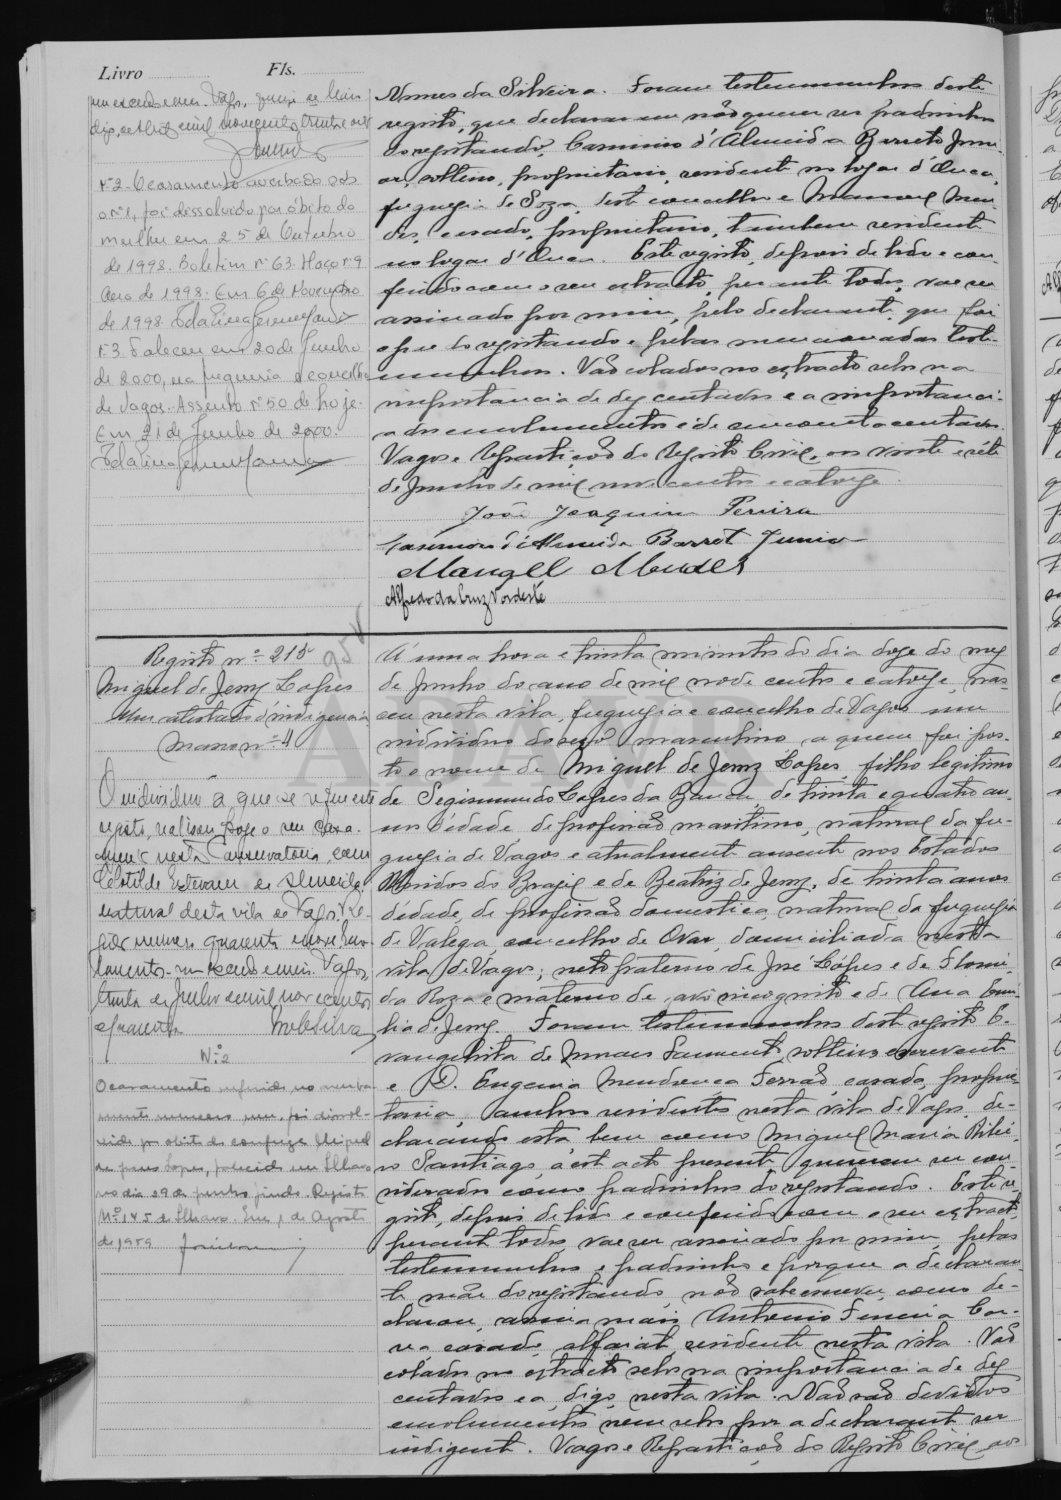 Livro Fls.
digo, sete de mil novecentos trinta e seis
Nº 2. O casamento averbado sob
o nº 1, foi dissolvido por óbito da
mulher em 25 de Outubro
de 1998. Boletim nº 63. Maço nº 9
Ano de 1998. Em 6 de Novembro
de 1998
Nº 3. Faleceu em 20 de Junho
de 2000, na freguesia e concelho
de Vagos. Assento nº 50 de hoje.
Em 21 de Junho de 2000.
Nunes da Silveira. Foram testemunhas deste
registo, que declararam não querer ser padrinhos
do registando, Casimiro d'Almeida Barreto Juni-
or, solteiro, proprietario, residente no logar d'Ouca,
freguesia de Soza, deste concelho e Manuel Men-
des, casado, proprietario, tambem residente
no logar d'Ouca. Este registo, depois de lido e con-
ferido com o seu extracto, perante todos, vae ser
assinado por mim, pelo declarante, que foi
o pae do registando e pelas mencionadas teste-
munhas. Vão colados no extracto selos na
importancia de dez centavos e a importanci-
a dos emolumentos é de cincoenta centavos.
Vagos e Repartição do Registo Civil, aos vinte e sete
de Junho de mil novecentos e catorze.
João Joaquim Pereira
Casimiro d'Almeida Barreto Junior
Manuel Mendes
Alfredo da Cruz Nordeste
Registo nº 215
Miguel de Jesus Lopes
Um atestado d'indigencia
Maço nº 4
95 V
O individuo a que se refere este
registo, realisou hoje o seu casa-
mento nesta Conservatoria, com
Clotilde Estevam de Almeida
natural desta vila de Vagos. Re-
gisto numero quarenta e nove. Emo-
lumentos Vagos,
trinta de Julho de mil novecentos
e quarenta.
Nº 2
O casamento referido no averba-
mento numero um, foi dissol-
vido por obito do conjuge Miguel
de Jesus Lopes, falecido em Ilhavo
no dia 29 de Junho findo. Registo
Nº 145 de Ilhavo. Em 1 de Agosto
de 1959
Á uma hora e trinta minutos do dia doze do mez
de Junho do ano de mil nove centos e catorze, nas-
ceu nesta vila, freguesia e concelho de Vagos um
individuo do sexo masculino a quem foi pos-
to o nome de Miguel de Jesus Lopes, filho legitimo
de Segismundo Lopes da Banca, de trinta e quatro an-
nos d'edade, de profissão maritimo, natural da fre-
guesia de Vagos e atualmente ausente nos Estados
Unidos do Brazil e de Beatriz de Jesus, de trinta anos
d'edade, de profissão domestica, natural da freguesia
de Valega concelho de Ovar, domiciliada nesta
vila de Vagos; neto paterno de José Lopes e de Flori-
da Roza e materno de avô incognito e de Ana Emi-
lia de Jesus. Foram testemunhas deste registo E-
vangelista de Moraes Sarmento, solteiro, escrevente
e D. Eugenia Mendonça Ferrão, casada, proprie-
taria, ambos residentes nesta vila de Vagos, de-
clarando esta bem como Miguel Maria Ribei-
ro Santiago, a este acto presente, quererem ser con-
siderados como padrinhos do registando. Este re-
gisto, depois de lido e conferido com o seu extracto,
perante todos, vae ser assinado por mim, pelas
testemunhas e padrinhos e porque a declaran-
te mãe do registando, não sabe escrever, como de-
clarou, assina mais Antonio Ferreira Cor-
rea casado, alfaiate, residente nesta vila. Vão
colados no extracto selos na importancia de dez
centavos e a, digo, nesta vila. Não são devidos
emolumentos nem selos por a declarante ser
indigente. Vagos e Repartição do Registo Civil, aos